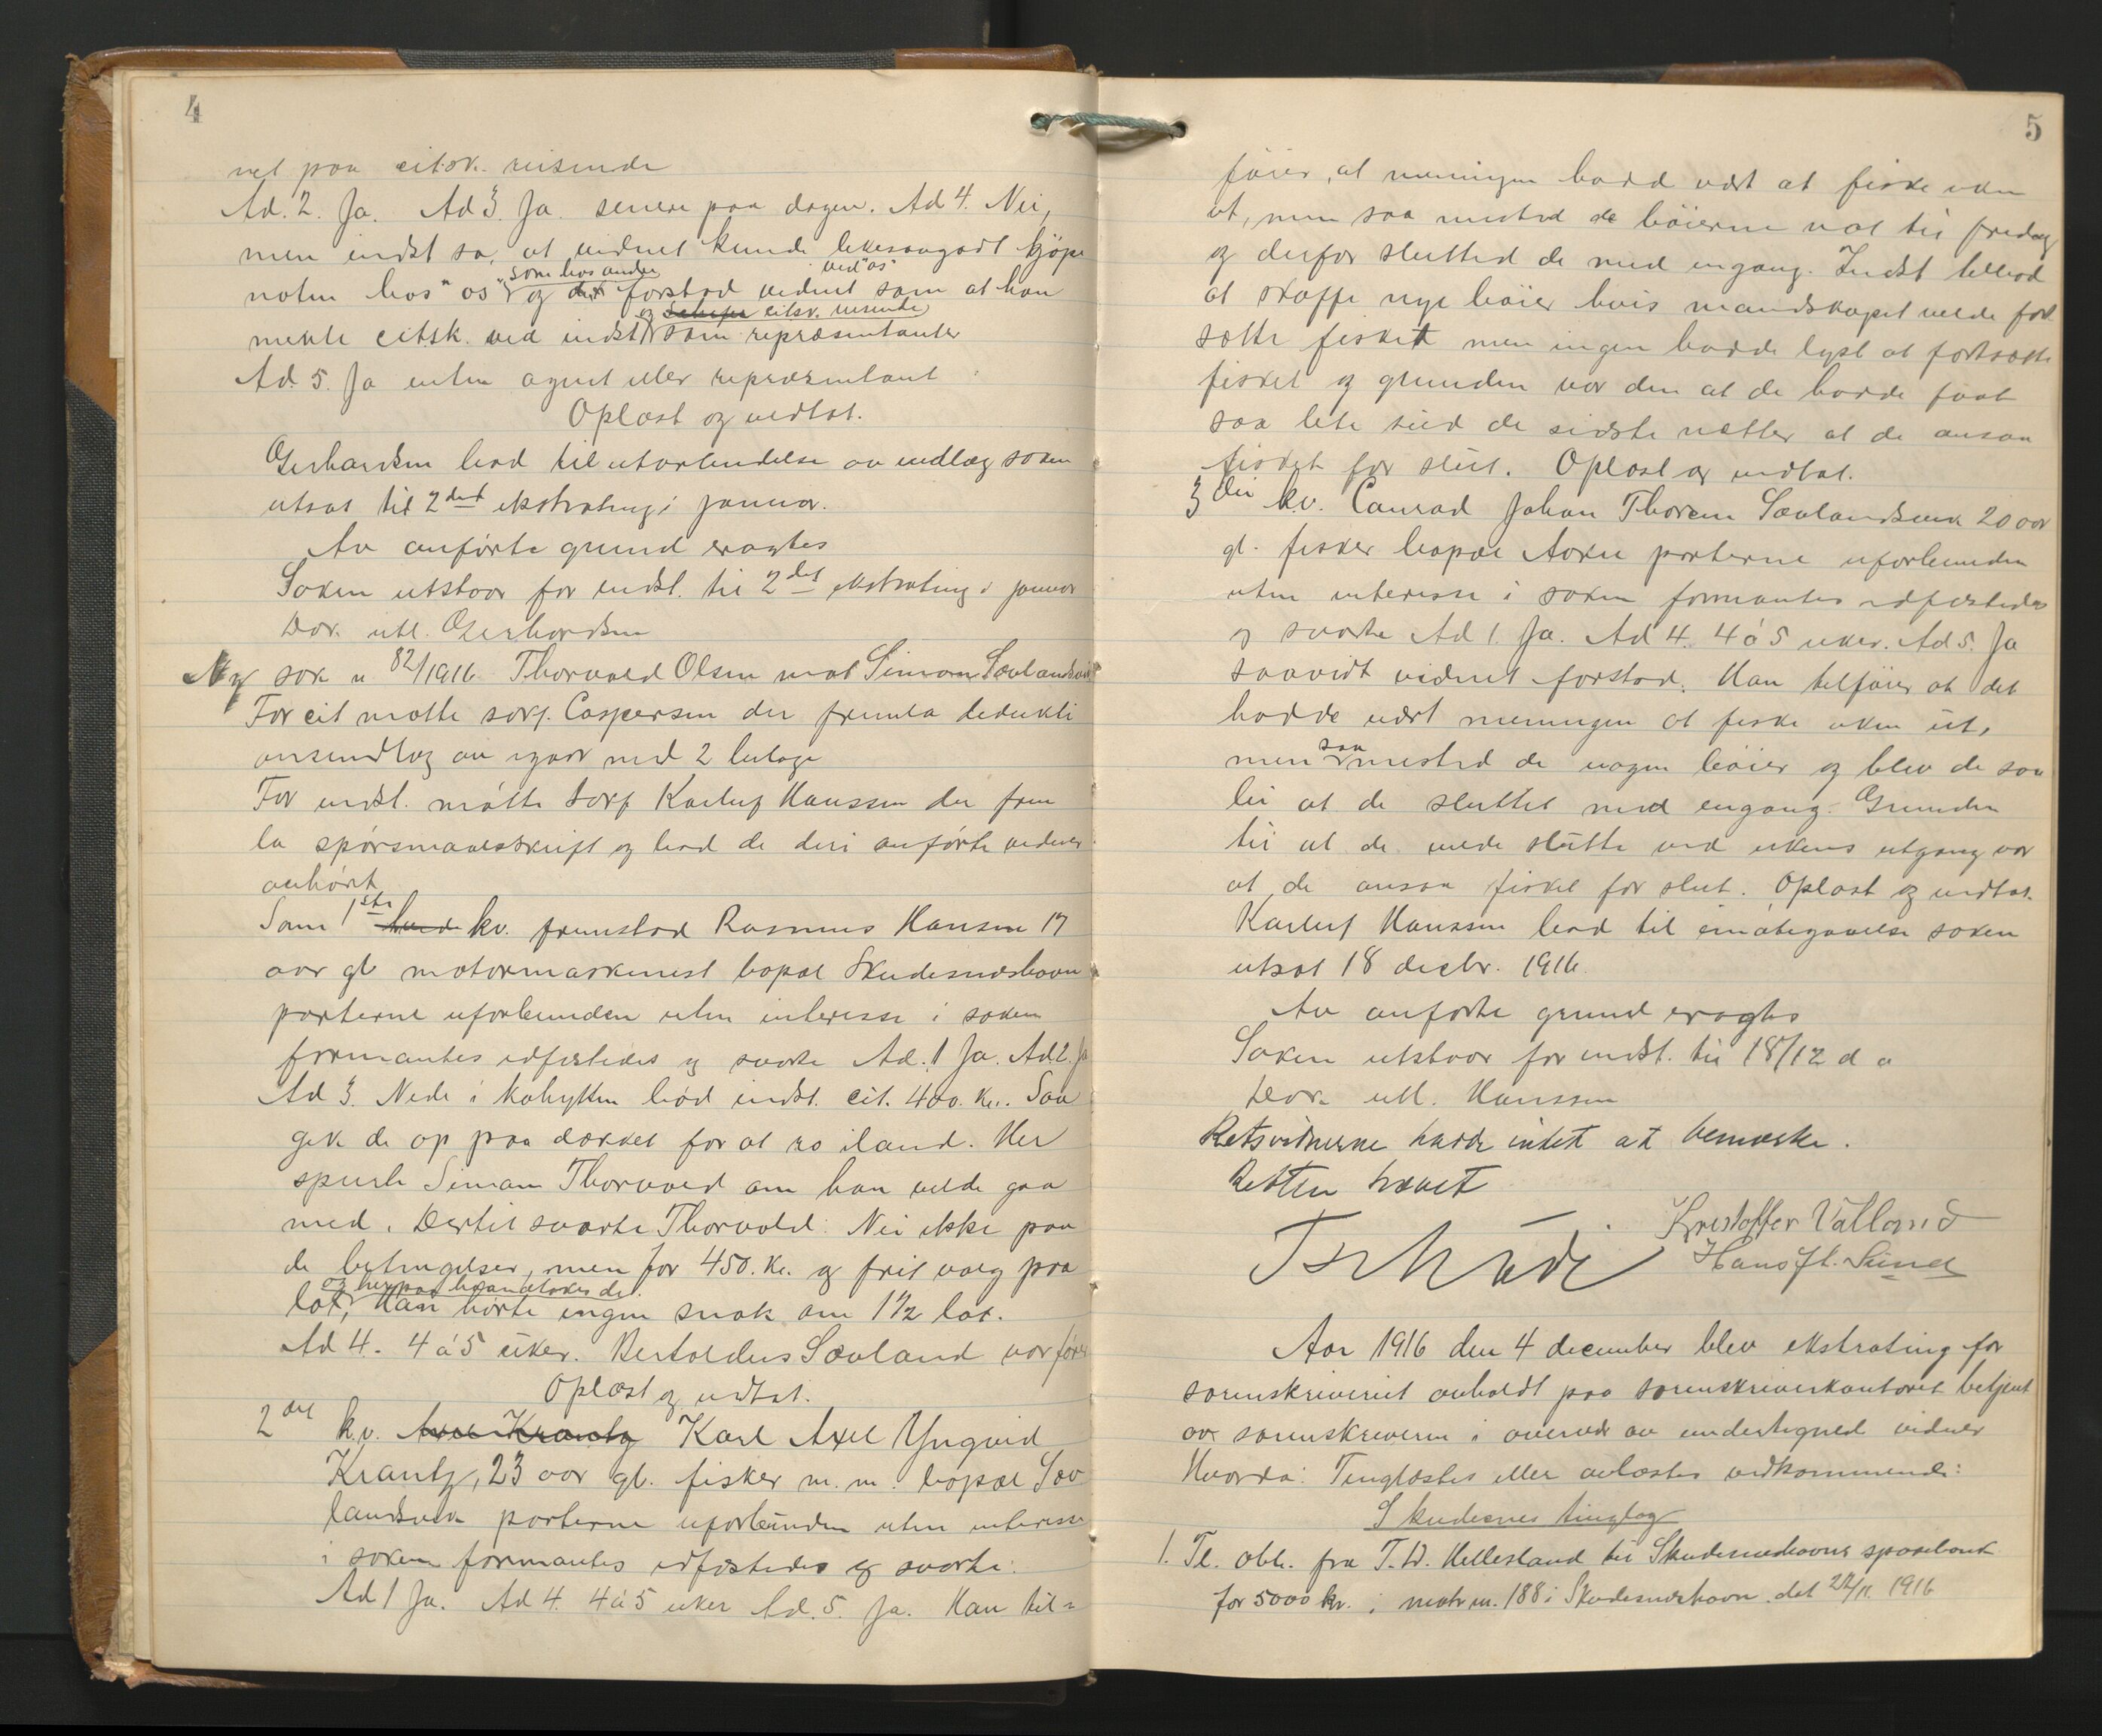 4
vet paa citsk. reisende
Ad. 2. Ja. Ad 3. Ja. senere paa dagen. Ad 4. Nei,
men indst sa, at vidnet kunde likesaagodt kjøpe
noten hos "os" som hos andre og det forstod vidnet ved "os" som at han
mente citsk. ved indst og citsk. reisende som repræsentanter
Ad. 5. Ja enten agent eller repræsentant
Oplæst og vedtat.
Gerhardsen bad til utarbeidelse av indlæg saken
utsat til 2det ekstrating i januar.
Av anførte grund eragtes
Saken utstaar for indst. til 2det ekstrating i januar
Dok. utl. Gerhardsen
Ny sak nr 82/1916 Thorvald Olsen mot Simon Sævlandsvik
For cit møtte sakf. Caspersen der fremla deduktions
indlæg av igaar med 2 bilage
For indst. møtte sakf Karluf Hanssen der frem
la spørsmaalsskrift og bad de deri anførte vidner
avhørt
Som 1ste kv. fremstod Rasmus Hansen 17
aar gl motormaskinist bopæl Skudesneshavn
parterne uforbunden uten interesse i saken
formantes edfæstedes og svarte Ad. 1 Ja. Ad 2. Ja
Ad 3. Nede i kahytten bød indst. cit. 400. kr. Saa
gik de op paa dækket for at ro iland. Her
spurte Simon Thorvald om han vilde gaa
med. Dertil svarte Thorvald: Nei ikke paa
de betingelser, men for 450. kr. og frit valg paa
lot, og herpaa haandtokes de. Han hørte ingen snak om 1½ lot.
Ad 4. 4 á 5 uker. Bertoldus Sævland var fører
Oplæst og vedtat.
2det kv. Axel Krantz Karl Axel Yngvid
Krantz, 23 aar gl. fisker m. m. bopæl Sæv
landsvik parterne uforbunden uten interesse
i saken formantes edfæstedes og svarte:
Ad 1 Ja. Ad 4. 4 á 5 uker Ad. 5. Ja. Han til=
5
føier, at meningen hadde vært at fiske uken
ut, men saa mistede de bøierne nat til fredag
og derfor sluttede de med engang. Indst tilbød
at skaffe nye bøier hvis mandskapet vilde fort
sætte fisket men ingen hadde lyst at fortsætte
fisket og grunden var den at de hadde faat
saa lite sild de sidste nætter at de ansaa
fisket for slut. Oplæst og vedtat.
3die kv. Conrad Johan Thorsen Sævlandsvik 20 aar
gl. fisker bopæl Aakre parterne uforbunden
uten interesse i saken formantes edfæstedes
og svarte Ad 1. Ja. Ad 4. 4 á 5 uker. Ad 5. Ja
saavidt vidnet forstod. Han tilføier at det
hadde vært meningen at fiske uken ut,
men saa mistede de nogen bøier og blev de saa
lei at de sluttet med engang. Grunden
til at de vilde slutte ved ukens utgang var
at de ansaa fisket for slut. Oplæst og vedtat.
Karluf Hanssen bad til imøtegaaelse saken
utsat 18 decbr. 1916.
Av anførte grund eragtes
Saken utstaar for indst. til 18/12 d a
Dok. utl. Hanssen
Retsvidnerne hadde intet at bemerke.
Retten hævet
Kristoffer Valland
Hans Fl. Sund
Aar 1916 den 4 december blev ekstrating for
sorenskriveriet avholdt paa sorenskriverkontoret betjent
av sorenskriveren i overvær av undertegnede vidner
Hvorda: Tinglæstes eller avlæstes vedkommende:
Skudesnes tinglag
1. Tl. obl. fra T. W. Hellesland til Skudesneshavns sparebank
for 5000 kr. i matr nr. 188 i Skudesneshavn. dat 22/11. 1916